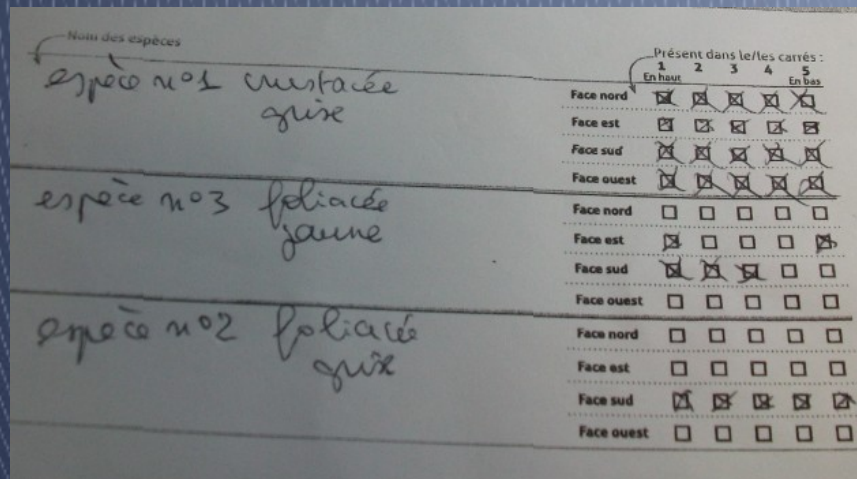 Nom des espèces
Présent dans le/les carrés :
1 2 3 4 5
En haut En bas
espèce n°1 crustacée
grise
Face nord
Face est
Face sud
Face ouest
espèce n°3 foliacée
jaune
Face nord
Face est
Face sud
Face ouest
espèce n°2 foliacée
grise
Face nord
Face est
Face sud
Face ouest